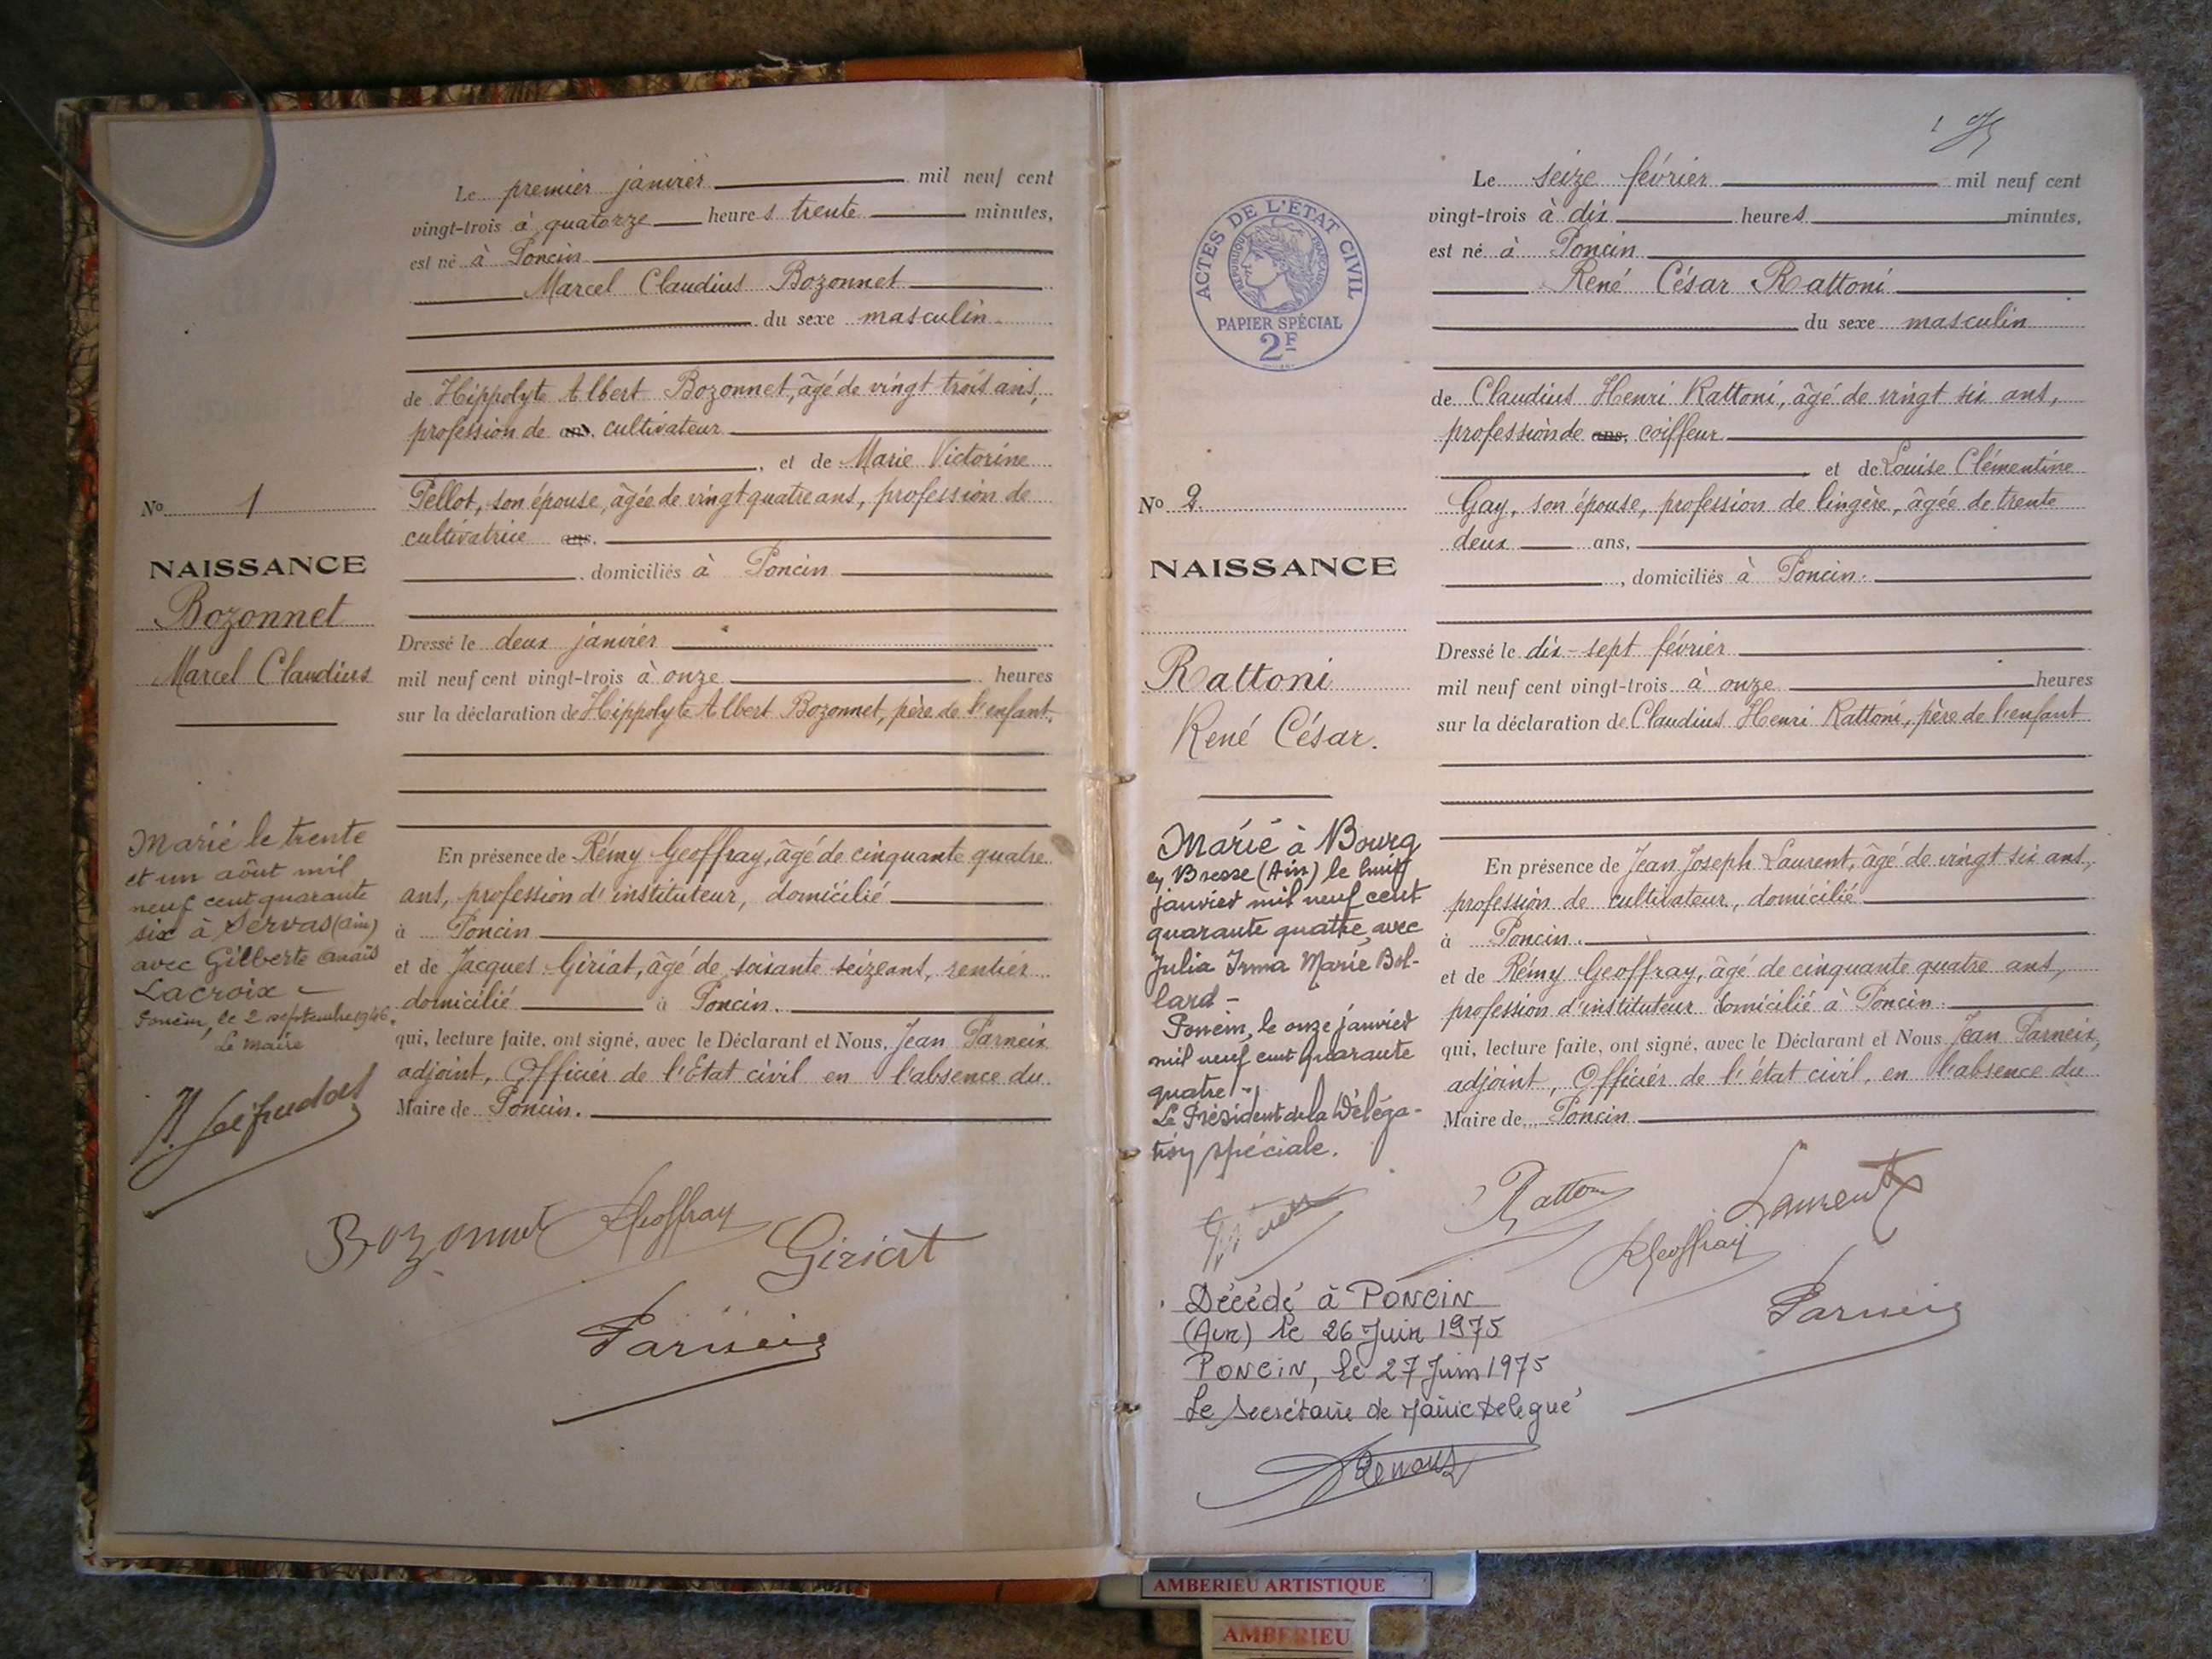 Le premier janvier mil neuf cent
vingt-trois à quatorze heures trente minutes,
est né à Poncin
Marcel Claudius Bozonnet
du sexe masculin
de Hippolyte Albert Bozonnet, âgé de vingt trois ans,
profession de ans, cultivateur
, et de Marie Victorine
Pellot, son épouse, âgée de vingt quatre ans, profession de
cultivatrice ans,
, domiciliés à Poncin
Dressé le deux janvier
mil neuf cent vingt-trois à onze heures
sur la déclaration de Hippolyte Albert Bozonnet, père de l'enfant.
En présence de Rémy Geoffray, âgé de cinquante quatre
ans, profession d'instituteur, domicilié
à Poncin
et de Jacques Giriat, âgé de soixante seize ans, rentier
domicilié à Poncin.
qui, lecture faite, ont signé, avec le Déclarant et Nous, Jean Parneix
adjoint, Officier de l'Etat civil en l'absence du
Maire de Poncin.
No 1
NAISSANCE
Bozonnet
Marcel Claudius
Marié le trente
et un août mil
neuf cent quarante
six à Servas (Ain)
avec Gilberte Anaïs
Lacroix
Poncin, le 2 septembre 1946.
Le Maire
Bozonnet RGeoffray
Giriat
Parneix
1
ACTES DE L'ETAT CIVIL
REPUBLIQUE FRANÇAISE
PAPIER SPÉCIAL
2F
Le seize février mil neuf cent
vingt-trois à dix heures minutes,
est né à Poncin
René César Rattoni
du sexe masculin
de Claudius Henri Rattoni, âgé de vingt six ans,
profession de ans, coiffeur
et de Louise Clémentine
Gay, son épouse, profession de lingère, âgée de trente
deux ans,
, domiciliés à Poncin.
Dressé le dix-sept février
mil neuf cent vingt-trois à onze heures
sur la déclaration de Claudius Henri Rattoni, père de l'enfant
En présence de Jean Joseph Laurent, âgé de vingt six ans,
profession de cultivateur, domicilié
à Poncin.
et de Rémy Geoffray, âgé de cinquante quatre ans,
profession d'instituteur domicilié à Poncin.
qui, lecture faite, ont signé, avec le Déclarant et Nous Jean Parneix,
adjoint, Officier de l'état civil, en l'absence du
Maire de Poncin
No 2.
NAISSANCE
Rattoni
René César.
Marié à Bourg
en Bresse (Ain) le huit
janvier mil neuf cent
quarante quatre avec
Julia Irma Marie Bol-
lard -
Poncin, le onze janvier
mil neuf cent quarante
quatre -
Le Président de la Déléga-
tion spéciale.
Rattoni
Laurent
RGeoffray
Parneix
Décédé à PONCIN
(Ain) le 26 Juin 1975
PONCIN, le 27 Juin 1975
Le Secrétaire de Mairie Délégué
AMBERIEU ARTISTIQUE
AMBERIEU